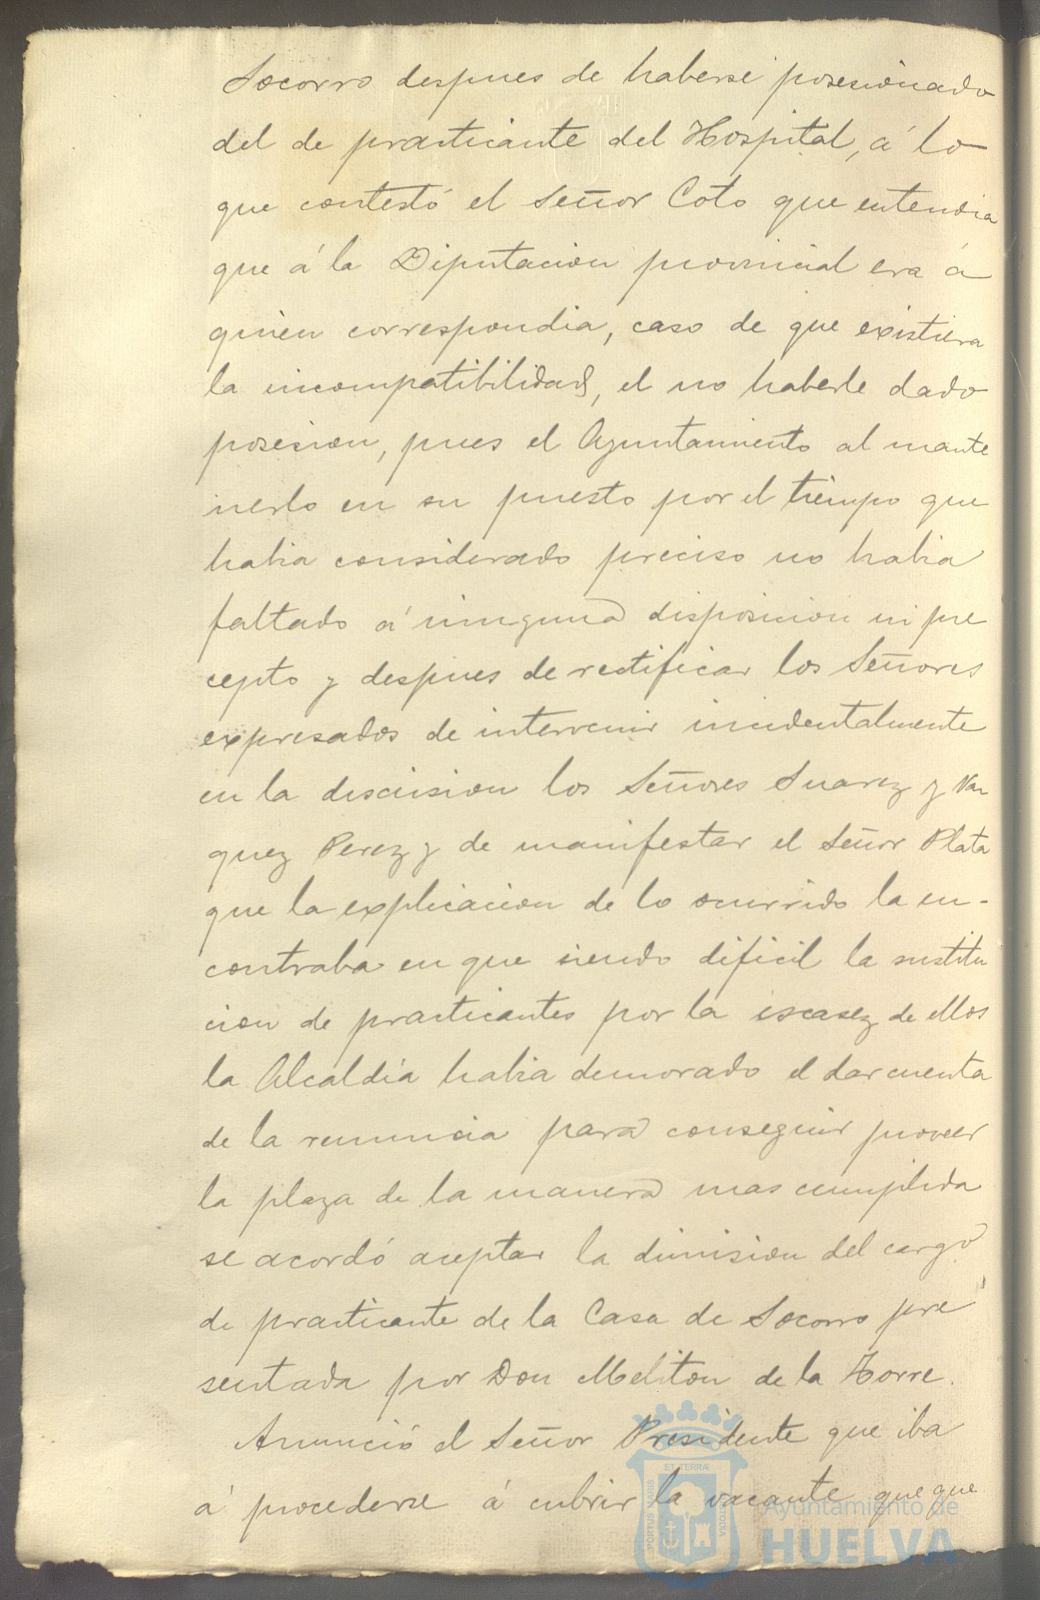 Socorro despues de haberse posesionado
del de practicante del Hospital, á lo
que contestó el Señor Coto que entendia
que á la Diputacion provincial era á
quien correspondia, caso de que existiera
la incompatibilidad, el no haberle dado
posesion, pues el Ayuntamiento al mante
nerlo en su puesto por el tiempo que
habia considerado preciso no habia
faltado á ninguna disposicion ni pre
cepto y despues de rectificar los Señores
expresados de intervenir incidentalmente
en la discusion los Señores Suarez y Vaz
quez Perez y de manifestar el Señor Plata
que la explicacion de lo ocurrido la en-
contraba en que siendo dificil la sustitu
cion de practicantes por la escasez de ellos
la Alcaldia habia demorado el dar cuenta
de la renuncia para conseguir proveer
la plaza de la manera mas cumplida
se acordó aceptar la dimision del cargo
de practicante de la Casa de Socorro pre
sentada por Don Meliton de la Torre.
Anunció el Señor Presidente que iba
á procederse á cubrir la vacante que que
Ayuntamiento de
HUELVA
ET TERRÆ
PORTUS MARIS
CUSTODIA